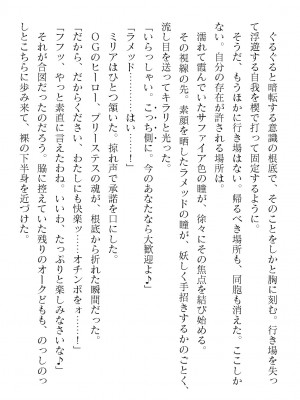 ぐるぐると暗転する意識の根底で、そのことをしかと胸に刻む。行き場を失っ
て浮遊する自我を楔で打って固定するように。
そうだ、もうほかに行き場はない。帰るべき場所も、同胞も消えた。ここしか
ない。自分の存在が許される場所は――
濡れて霞んでいたサファイア色の瞳が、徐々にその焦点を結び始める。
その視線の先。素顔を晒したラメッドの瞳が、妖しく手招きするかのごとく、
流し目を送ってキラリと光った。
「いらっしゃい。こっち側に。今のあなたなら大歓迎よ♪」
「ラメッド……はい……！」
ミリアはひとつ頷いた。掠れ声で承諾を口にした。
ＯＧのヒーロー、プリーステスの魂が、根底から折れた瞬間だった。
「だから、だからください、わたしにも快楽ッ……オチンポをォ……！」
「フフッ、やっと素直に言えたわね。いいわ、たっぷりと楽しみなさいな♪」
それが合図だったのだろう。脇に控えていた残りのオークどもも、のっしのっ
しとこちらに歩み来て、裸の下半身を近づけた。